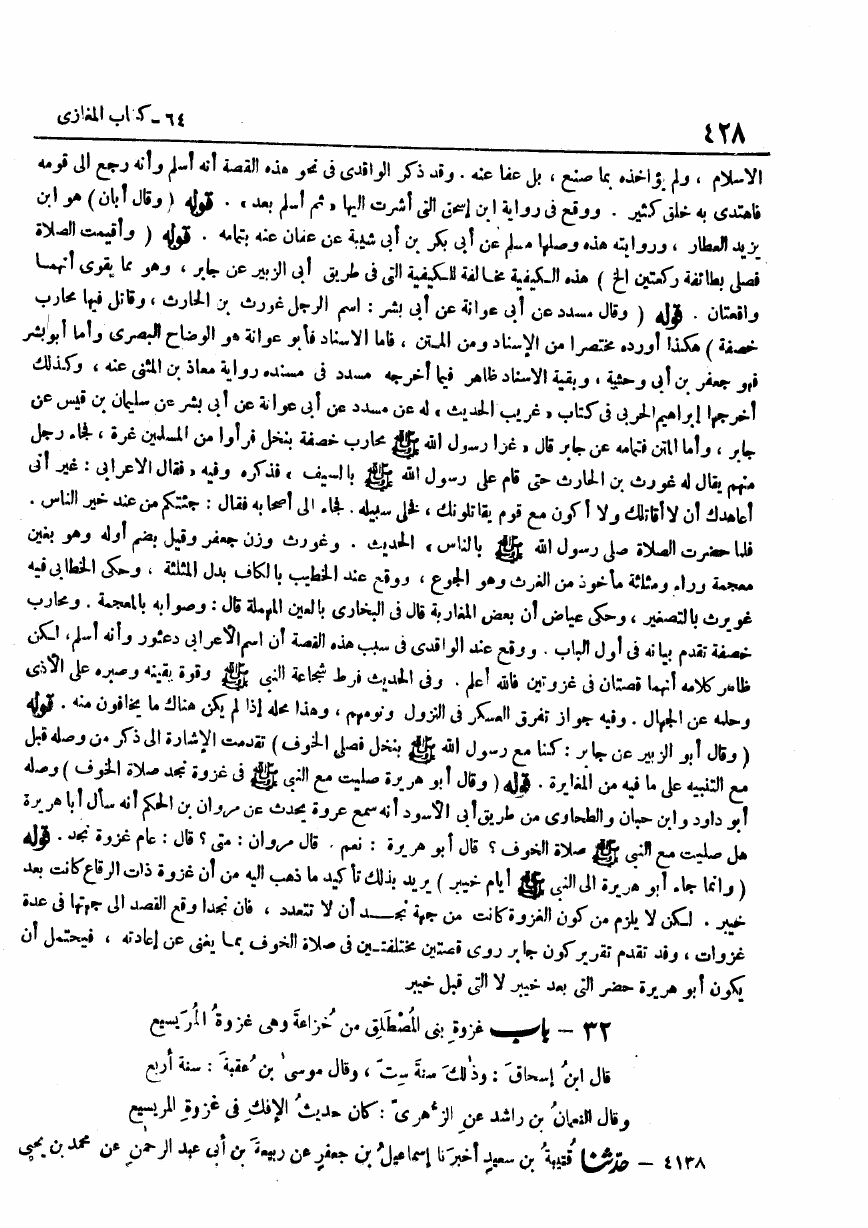 ٤٢٨
٦٤ - كتاب المغازى
الاسلام ، ولم يؤاخذه بما صنع ، بل عفا عنه . وقد ذكر الواقدى فى نحو هذه القصة أنه أسلم وأنه رجع الى قومه
فاهتدى به خلق كثير . ووقع فى رواية ابن إسحق التى أشرت اليها « ثم أسلم بعد » . قوله ( وقال أبان ) هو ابن
يزيد العطار ، وروايته هذه وصلها مسلم عن أبى بكر بن أبى شيبة عن عفان عنه بتمامه . قوله ( وأقيمت الصلاة
فصلى بطائفة ركعتين الخ ) هذه الكيفية مخالفة للكيفية التى فى طريق أبى الزبير عن جابر ، وهو مما يقوى أنهما
واقعتان . قوله ( وقال مسدد عن أبى عوانة عن أبى بشر : اسم الرجل غورث بن الحارث ، وقاتل فيها محارب
خصفة ) هكذا أورده مختصرا من الإسناد ومن المتن ، فاما الاسناد فأبو عوانة هو الوضاح البصرى وأما أبو بشر
فهو جعفر بن أبى وحشية ، وبقية الاسناد ظاهر فيما أخرجه مسدد فى مسنده رواية معاذ بن المثنى عنه ، وكذلك
أخرجها إبراهيم الحربى فى كتاب « غريب الحديث » له عن مسدد عن أبى عوانة عن أبى بشر عن سليمان بن قيس عن
جابر ، وأما المتن فتمامه عن جابر قال « غزا رسول الله ﷺ محارب خصفة بنخل فرأوا من المسلمين غرة ، فجاء رجل
منهم يقال له غورث بن الحارث حتى قام على رسول الله ﷺ بالسيف ، فذكره وفيه « فقال الاعرابى : غير أنى
أعاهدك أن لا أقاتلك ولا أكون مع قوم يقاتلونك ، فخلى سبيله . فجاء الى أصحابه فقال : جئتكم من عند خير الناس .
فلما حضرت الصلاة صلى رسول الله ﷺ بالناس » الحديث . وغورث وزن جعفر وقيل بضم أوله وهو بغين
معجمة وراء ومثلثة مأخوذ من الغرث وهو الجوع ، ووقع عند الخطيب بالكاف بدل المثلثة ، وحكى الخطابى فيه
غويرث بالتصغير ، وحكى عياض أن بعض المغاربة قال فى البخارى بالعين المهملة قال : وصوابه بالمعجمة . ومحارب
خصفة تقدم بيانه فى أول الباب . ووقع عند الواقدى فى سبب هذه القصة أن اسم الأعرابى دعثور وأنه أسلم ، لكن
ظاهر كلامه أنهما قصتان فى غزوتين فالله أعلم . وفى الحديث فرط شجاعة النبى ﷺ وقوة يقينه وصبره على الأذى
وحلمه عن الجهال . وفيه جواز تفرق العسكر فى النزول ونومهم ، وهذا محله إذا لم يكن هناك ما يخافون منه . قوله
( وقال أبو الزبير عن جابر : كنا مع رسول الله ﷺ بنخل فصلى الخوف ) تقدمت الإشارة الى ذكر من وصله قبل
مع التنبيه على ما فيه من المغايرة . قوله ( وقال أبو هريرة صليت مع النبى ﷺ فى غزوة نجد صلاة الخوف ) وصله
أبو داود وابن حبان والطحاوى من طريق أبى الأسود أنه سمع عروة يحدث عن مروان بن الحكم أنه سأل أبا هريرة
هل صليت مع النبى ﷺ صلاة الخوف ؟ قال أبو هريرة : نعم . قال مروان : متى ؟ قال : عام غزوة نجد . قوله
( وانما جاء أبو هريرة الى النبى ﷺ أيام خيبر ) يريد بذلك تأكيد ما ذهب اليه من أن غزوة ذات الرقاع كانت بعد
خيبر . لكن لا يلزم من كون الغزوة كانت من جهة نجد أن لا تتعدد ، فان نجدا وقع القصد الى جهتها فى عدة
غزوات ، وقد تقدم تقرير كون جابر روى قصتين مختلفتين فى صلاة الخوف بما يغنى عن إعادته ، فيحتمل أن
يكون أبو هريرة حضر التى بعد خيبر لا التى قبل خيبر
٣٢ - باب غزوةِ بنى المُصْطَلِقِ من خُزاعةَ وهى غزوةُ المُرَيسيع
قال ابنُ إسحاقَ : وذٰلكَ سنةَ سِتٍّ ، وقال موسىٰ بن عُقبةَ : سنةَ أربع
وقال النعمانُ بن راشد عنِ الزُّهرىِّ : كان حديثُ الإفكِ فى غزوةِ المريسيع
٤١٣٨ - حدّثنا قُتَيبةُ بن سعيدٍ أخبرَنا إسماعيلُ بن جعفرٍ عن ربيعةَ بن أبى عبد الرحمنِ عن محمد بن يحيى